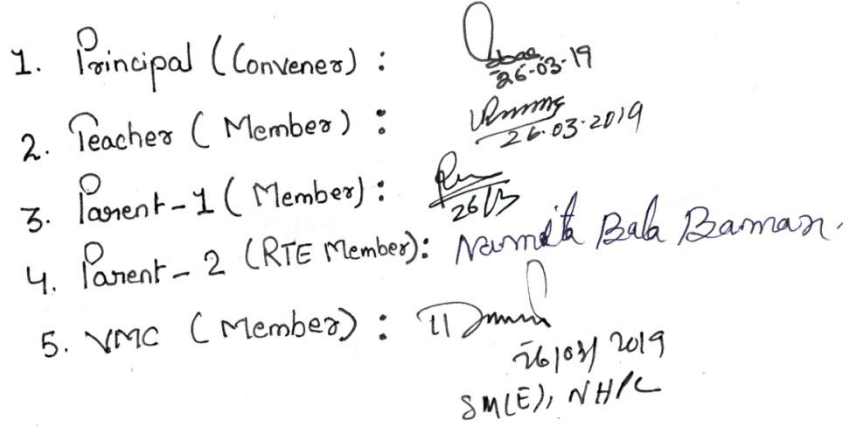 1. Principal (Convener) : 26-03-19
2. Teacher ( Member ) : 26.03.2019
3. Parent-1 ( Member) : 26/3
4. Parent - 2 (RTE Member): Namita Bala Barman.
5. VMC ( Member) :
26/03/2019
SM(E), NHPC